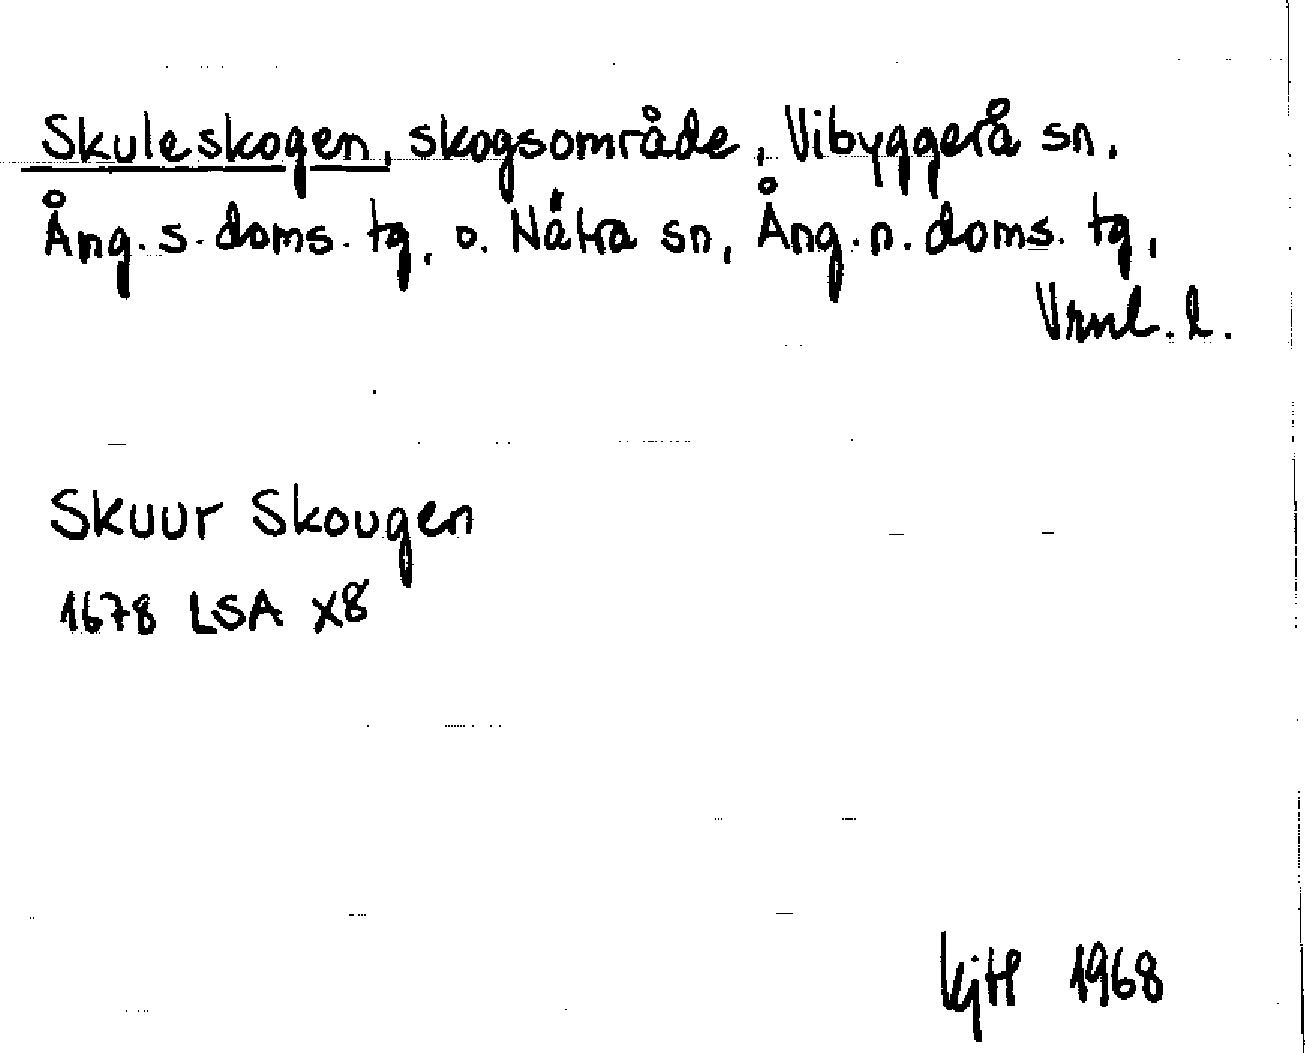 Skuleskogen, skogsområde, Vibyggerå sn,
Ång. s. doms. tg, o. Nätra sn, Ång. n. doms. tg,
Vrnl. l.
Skuur Skougen
1678 LSA X8
KjH 1968